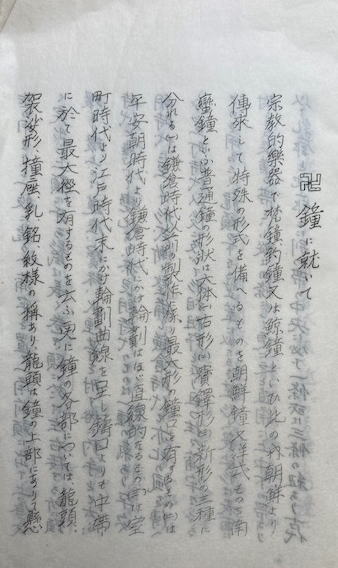 卍 鐘に就いて
宗教的樂器で梵鐘釣鐘又は鯨鐘といひ此の內朝鮮より
傳来して特殊の形式を備へるものを朝鮮鐘又洋式のものを南
蠻鐘といふ普通鐘の形状は大体(1)古形(2)寶鐸形(3)新形の三種に
分れる(1)は鎌倉時代以前の製作に係り最大形の鐘口を有するもの(2)は
平安朝時代より鎌倉時代にかけ輪劃はほぼ直線的なるもの(3)は室
町時代より江戸時代末にかけ輪劃曲線を呈し鐘口よりも中帯
に於て最大徑を有するものを云ふ更に鐘の各部については龍頭、
袈裟形、撞座、乳、銘、紋様の稱あり龍頭は鐘の上部にありて懸